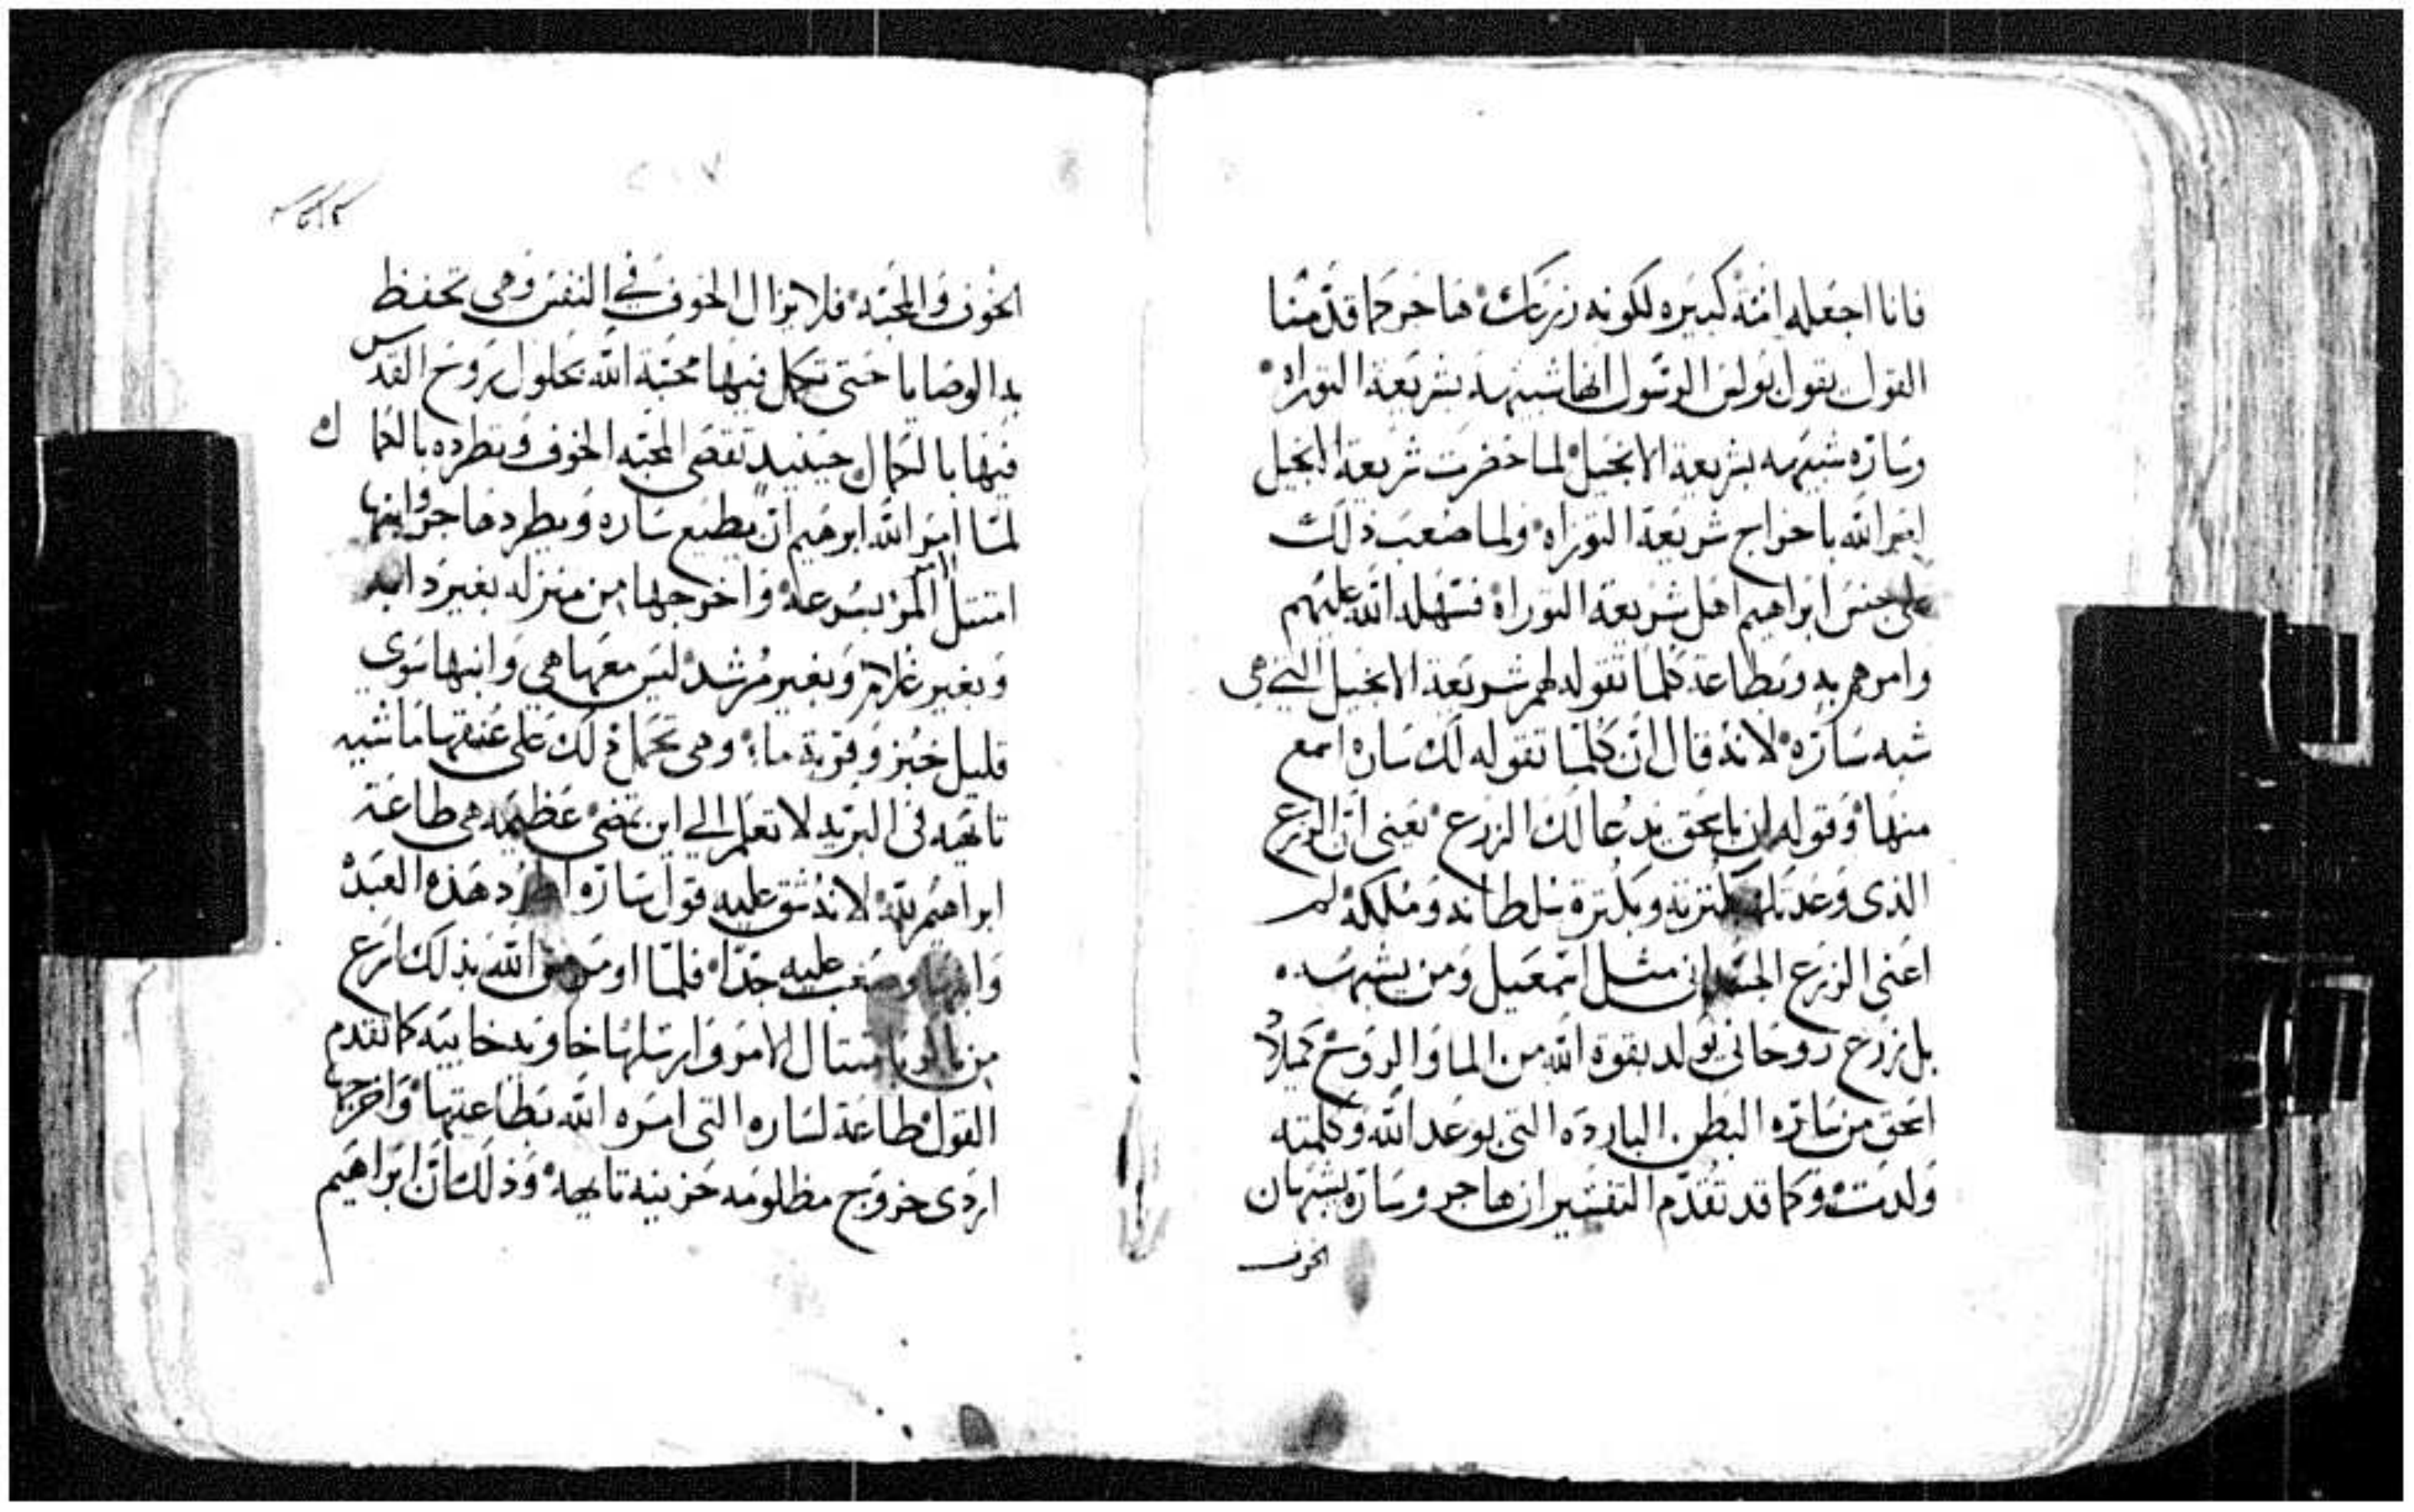 فانا اجعله امة كبيره لكونه زرعك هاجر كما قدمنا
القول يقول بولس الرسول انها شبيهه بشريعة التوراه
وساره شبيهه بشريعة الانجيل لما حضرت شريعة انجيل
امر الله باخراج شريعة التوراه ولما صعب ذلك
على جنس ابراهيم اهل شريعة التوراة فسهله الله عليهم
وامرهم به وبطاعة كلما تقوله لهم شريعة الانجيل التي هي
شبه ساره لانه قال ان كلما تقوله لك ساره اسمع
منها وقوله ان باسحق يدعا لك الزرع يعني ان الزرع
الذي وعدتك بكثرته وبكثرة سلطانه وملكه لم
اعني الزرع الجسداني مثل اسمعيل ومن يشبهه
بل زرع روحاني يولد بقوة الله من الما والروح كميلاد
اسحق من ساره البطن الباردة التي بوعد الله وكلمته
ولدت وكما قد تقدم التفسير ان هاجر وساره يشبهان
الخوف
الخوف والمحبه فلا يزال الخوف في النفس وهي تحفظ
به الوصايا حتى تكمل فيها محبة الله بحلول روح القدس
فيها بالكمال حينيد تقصي المحبه الخوف وتطرده بالكمال
لما امر الله ابرهيم ان يطيع ساره ويطرد هاجر وابنها
امتثل الامر بسرعة واخرجها من منزله بغير دابه
وبغير غلام وبغير مرشد ليس معها هي وابنها سوى
قليل خبز وقربة ماء وهي تحمل ذلك على عنقها ماشيه
تايهه في البريه لا تعلم الي اين تمضي عظيمه هي طاعة
ابراهيم لله لانه شق عليه قول ساره اطرد هذه العبده
وابنها وصعب عليه جدا فلما اومر من الله بذلك اسرع
من باكر بامتثال الامر وارسلها خاويه خايبه كما تقدم
القول طاعة لساره التي امره الله بطاعتها واخرجها
اردى خروج مظلومه حزينه تايهه وذلك ان ابراهيم